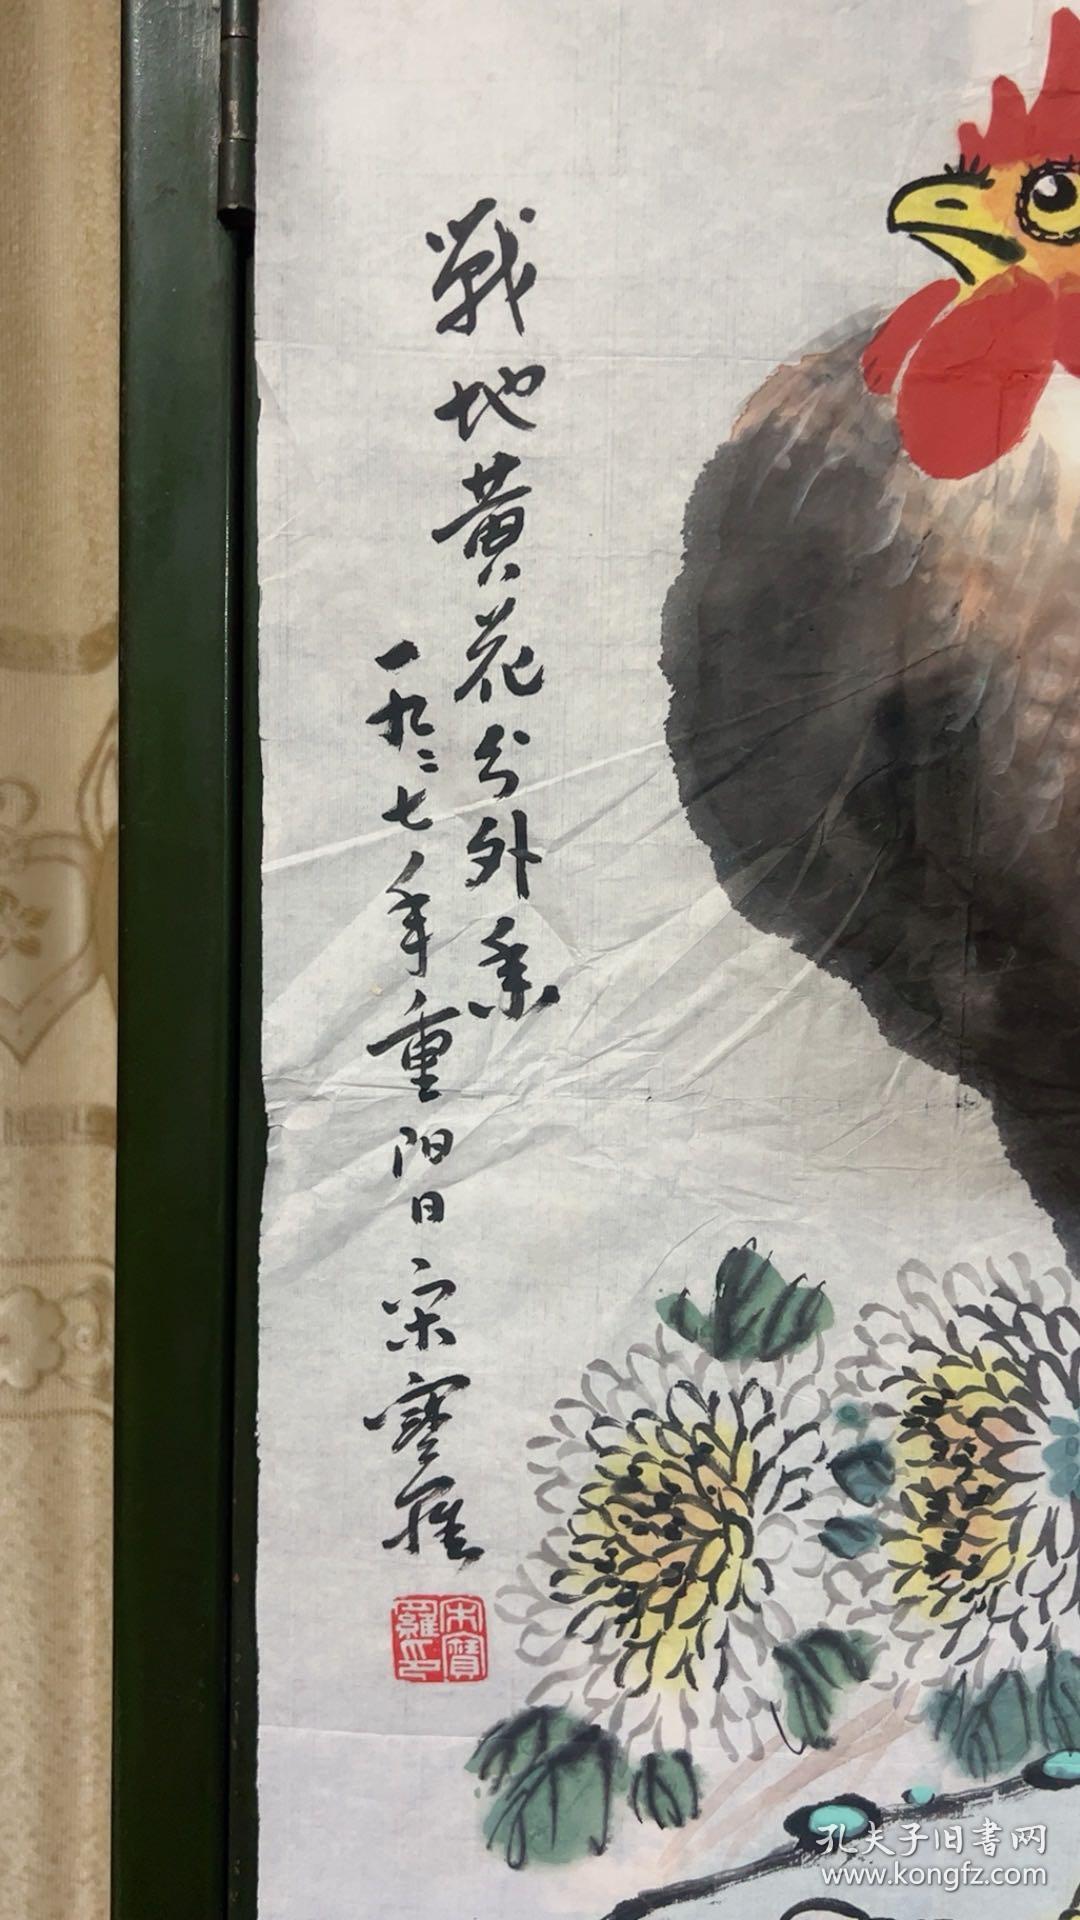 戰地黄花分外香
一九二七年重阳日宋寶羅
宋寶羅印
孔夫子旧書网
www.kongfz.com